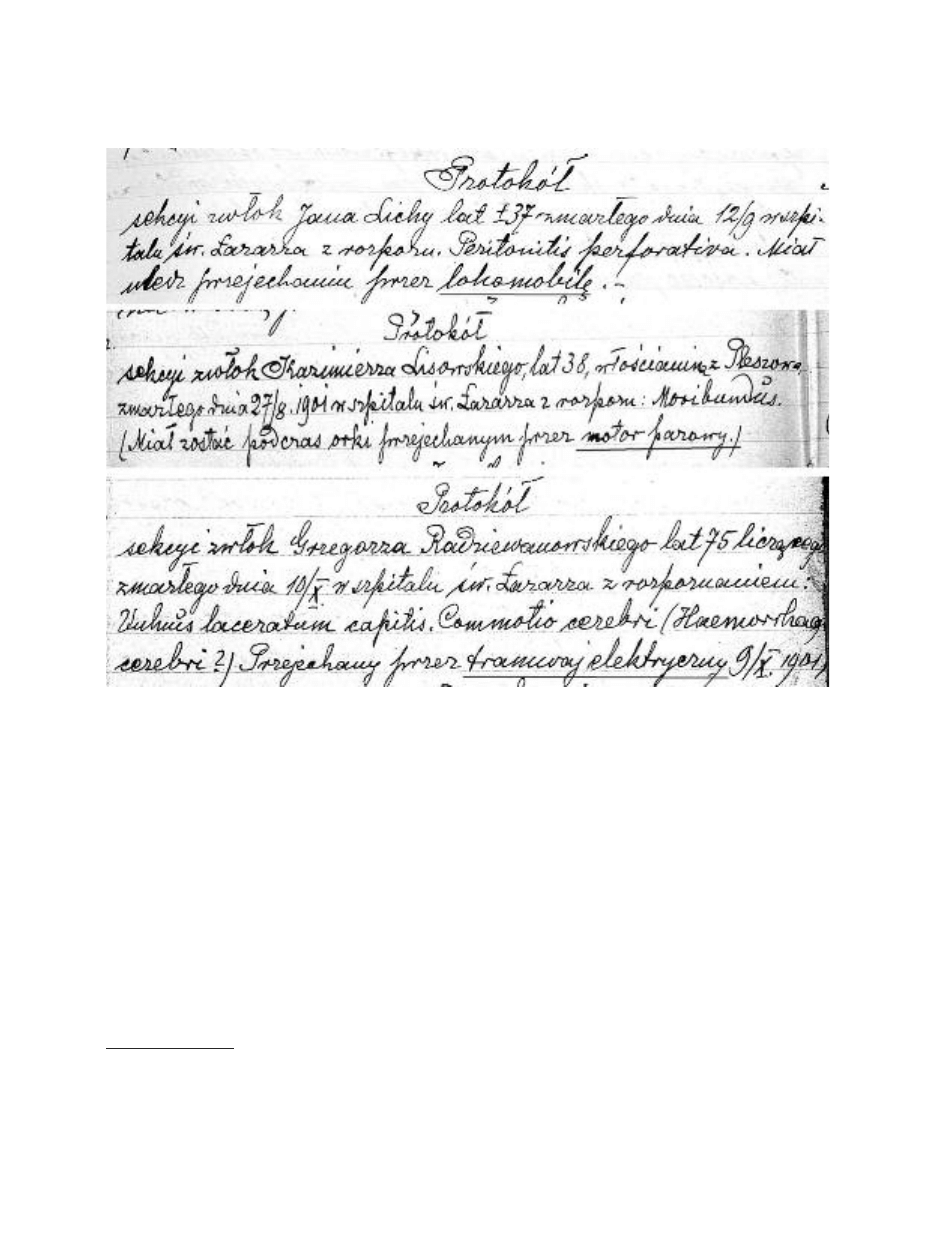 Protokół
sekcyi zwłok Jana Lichy lat ±37 zmarłego dnia 12/9 w szpi-
talu św. Łazarza z rozpozn. Peritonitis perforativa. Miał
uledz przejechaniu przez lokomobilę.-
Protokół
sekcyi zwłok Kazimierza Lisowskiego, lat 38, włościanina z Pleszowa,
zmarłego dnia 27/8. 1901 w szpitalu św. Łazarza z rozpozn: Moribundus.
(Miał zostać podczas orki przejechanym przez motor parowy.)
Protokół
sekcyi zwłok Grzegorza Radziewanowskiego lat 75 liczącego
zmarłego dnia 10/X w szpitalu św. Łazarza z rozpoznaniem:
Vulnus laceratum capitis. Commotio cerebri (Haemorrhag.
cerebri?) Przejechany przez tramwaj elektryczny 9/X. 1901)